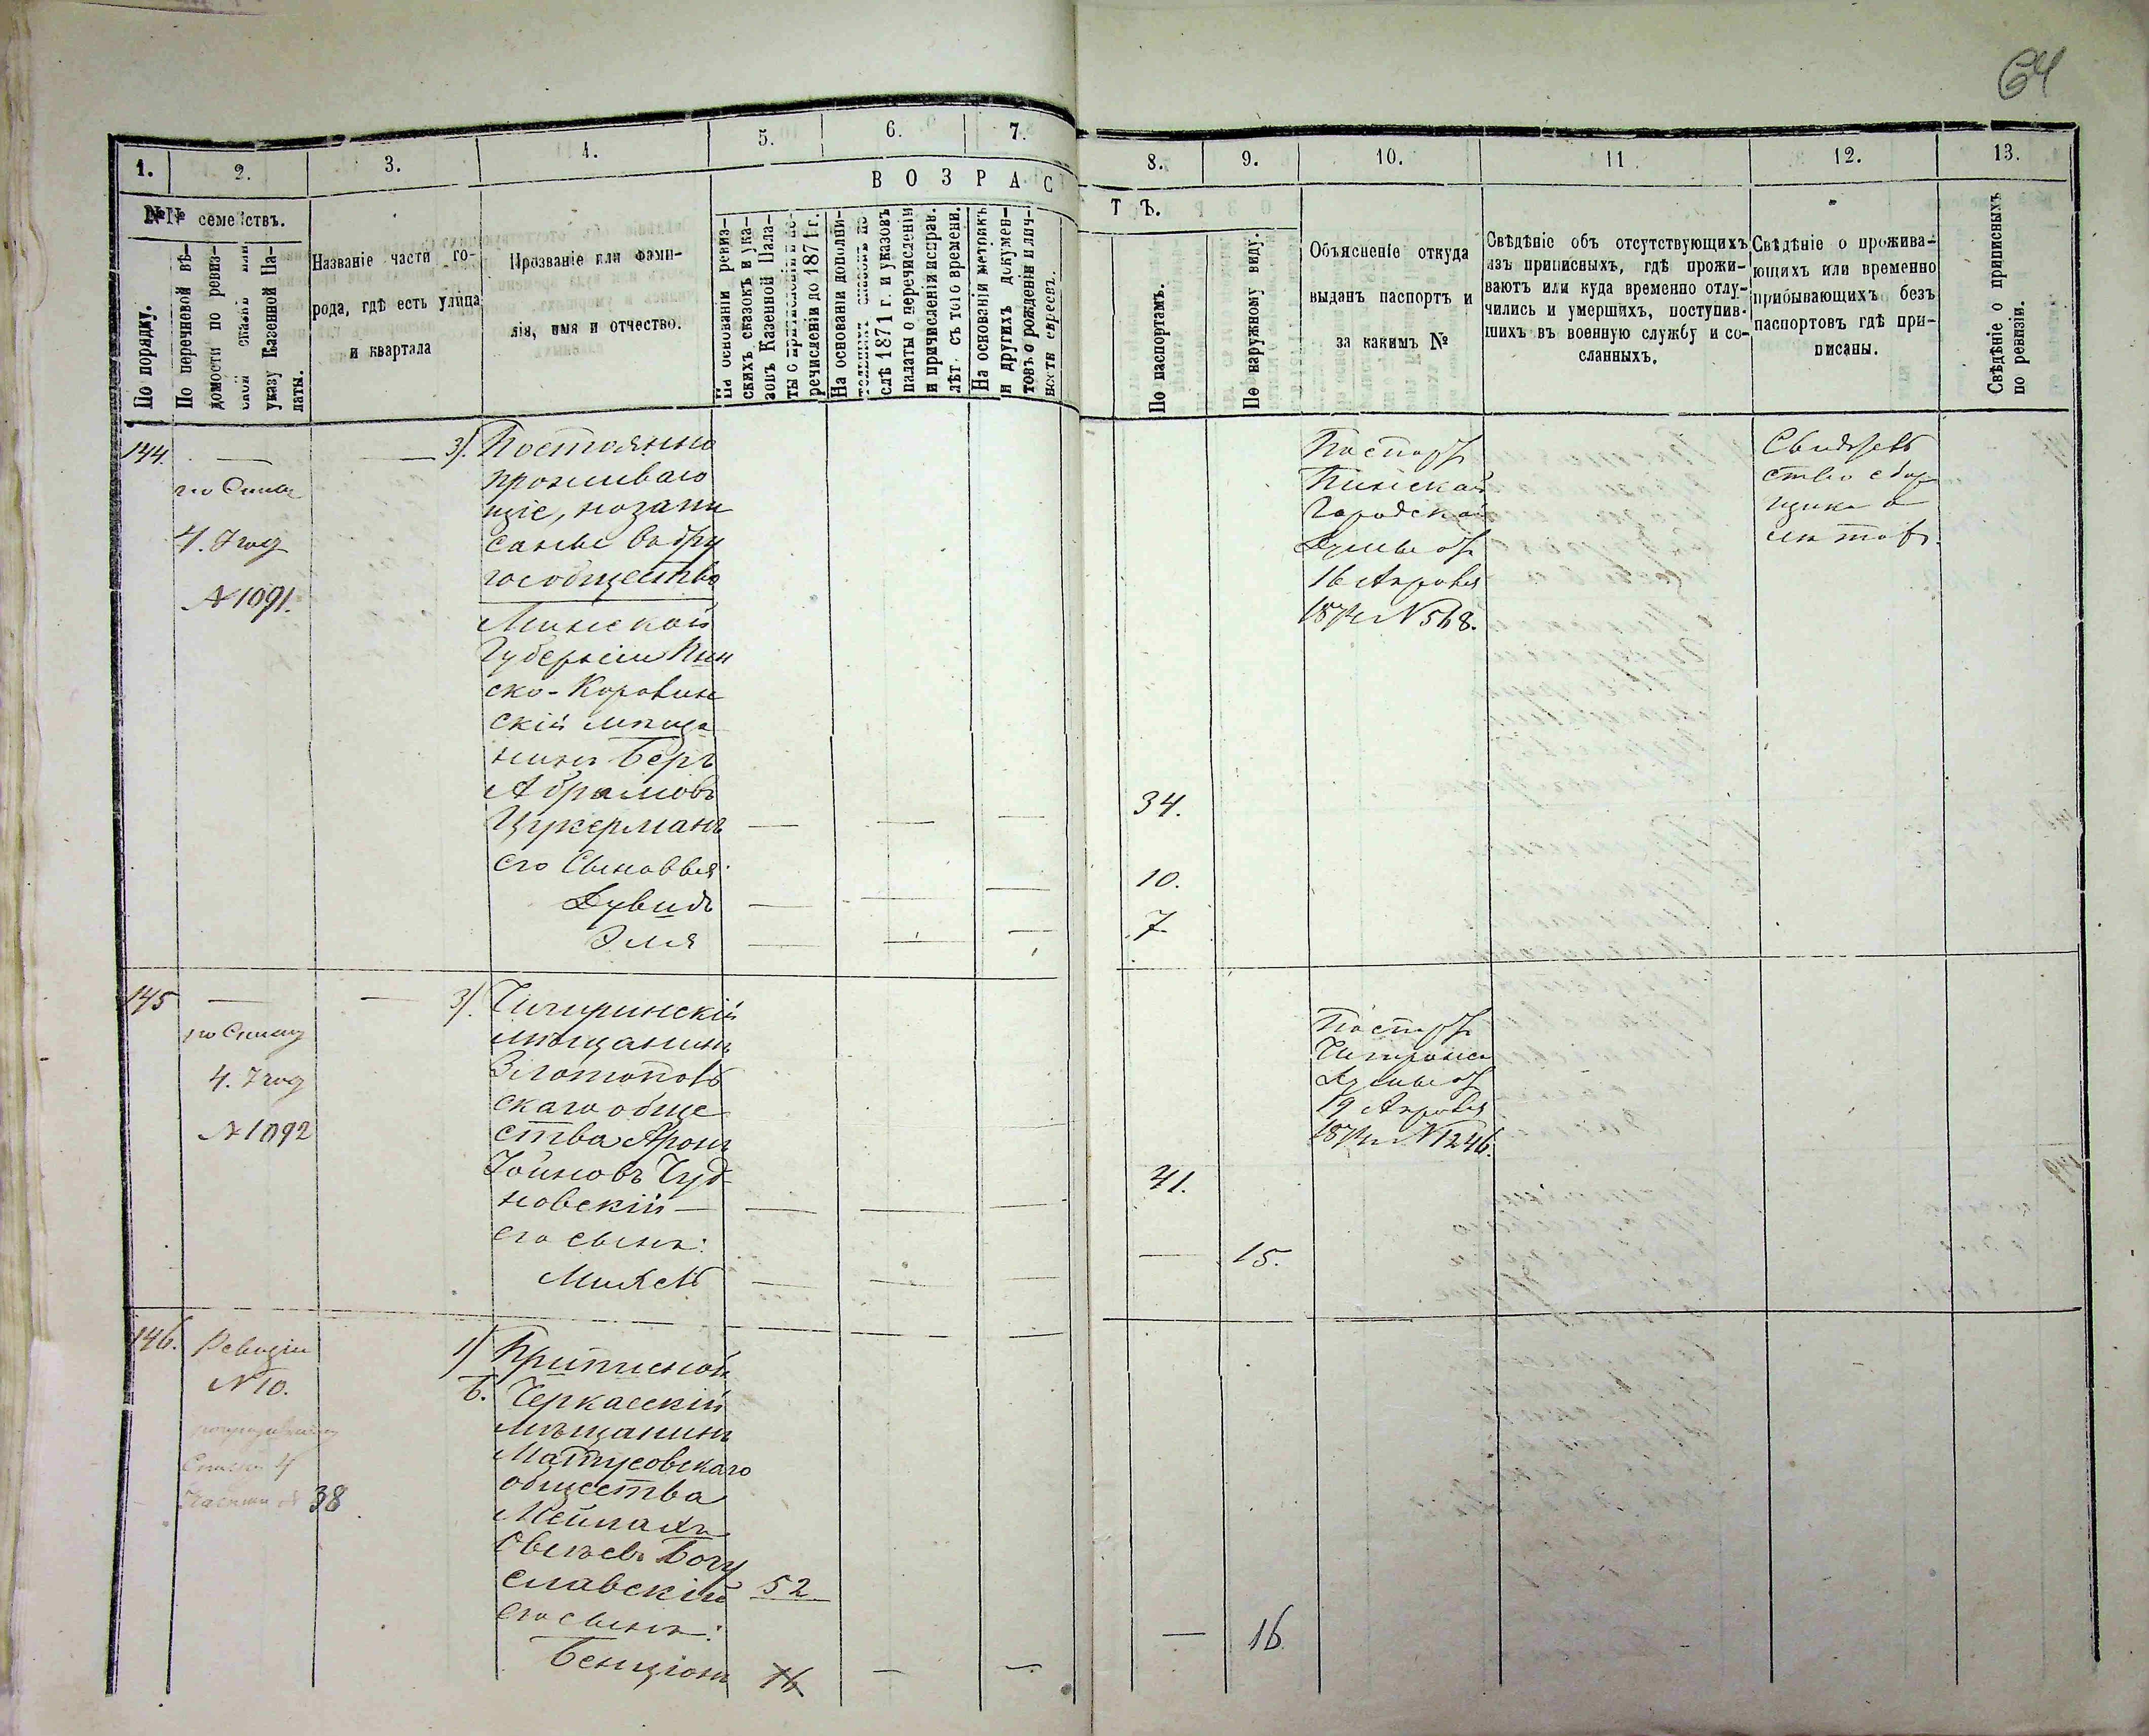 64
1. 2. 3. 4. 5. 6. 7. 8. 9. 10. 11 12. 13.
В О З Р А С Т Ъ.
№№ семействъ.
По порядку.
По перечневой вѣ-
домости по ревиз-
ской сказкѣ или
указу Казенной Па-
латы.
Названіе части го-
рода, гдѣ есть улица
и квартала
Прозваніе или фами-
лія, имя и отчество.
На основаніи ревиз-
скихъ сказокъ и ука-
зовъ Казенной Пала-
ты
речисленіи до 1871 г.
На основаніи дополни-
слѣ 1871 г. и указовъ
палаты о перечисленіи
и причисленіи исправ.
лѣт. съ того времени.
На основаніи метрикъ
и другихъ докумен-
товъ о рожденіи и лич-
ности евреевъ.
По паспортамъ.
По наружному виду.
Объясненіе откуда
выданъ паспортъ и
за какимъ №
Свѣдѣніе объ отсутствующихъ
изъ приписныхъ, гдѣ прожи-
ваютъ или куда временно отлу-
чились и умершихъ, поступив-
шихъ въ военную службу и со-
сланныхъ.
Свѣдѣніе о прожива-
ющихъ или временно
прибывающихъ безъ
паспортовъ гдѣ при-
писаны.
Свѣдѣніе о приписныхъ
по ревизіи.
144.
4.
№ 1091.
3). Постоянно
проживаю
щіе, но запи
санные въ дру
гое общество
Минской
Губерніи Пин
ско-Каролин
скій мѣща
нинъ Беръ
Абрамовъ
Цукерманъ
34.
его Сыновья:
Дувидъ
10.
Эля
7
Паспортъ
Пинской
Городской
Думы отъ
16 Апрѣля
1874 г. № 568.
Свидѣтель
ство сбор
щика
145
4.
№ 1092
3). Чигиринскій
мѣщанинъ
Златополь
скаго обще
ства Аронъ
Іойновъ Чуд
новскій
41.
его сынъ:
Михель
15.
Паспортъ
Думы отъ
19 Апрѣля
1874 г. № 1246.
146.
Ревизіи
№ 10.
38
1) Приписной
б. Черкасскій
мѣщанинъ
Матусовскаго
общества
Мейлахъ
Богу
славскій
52
его сынъ:
Бенціонъ
16
16